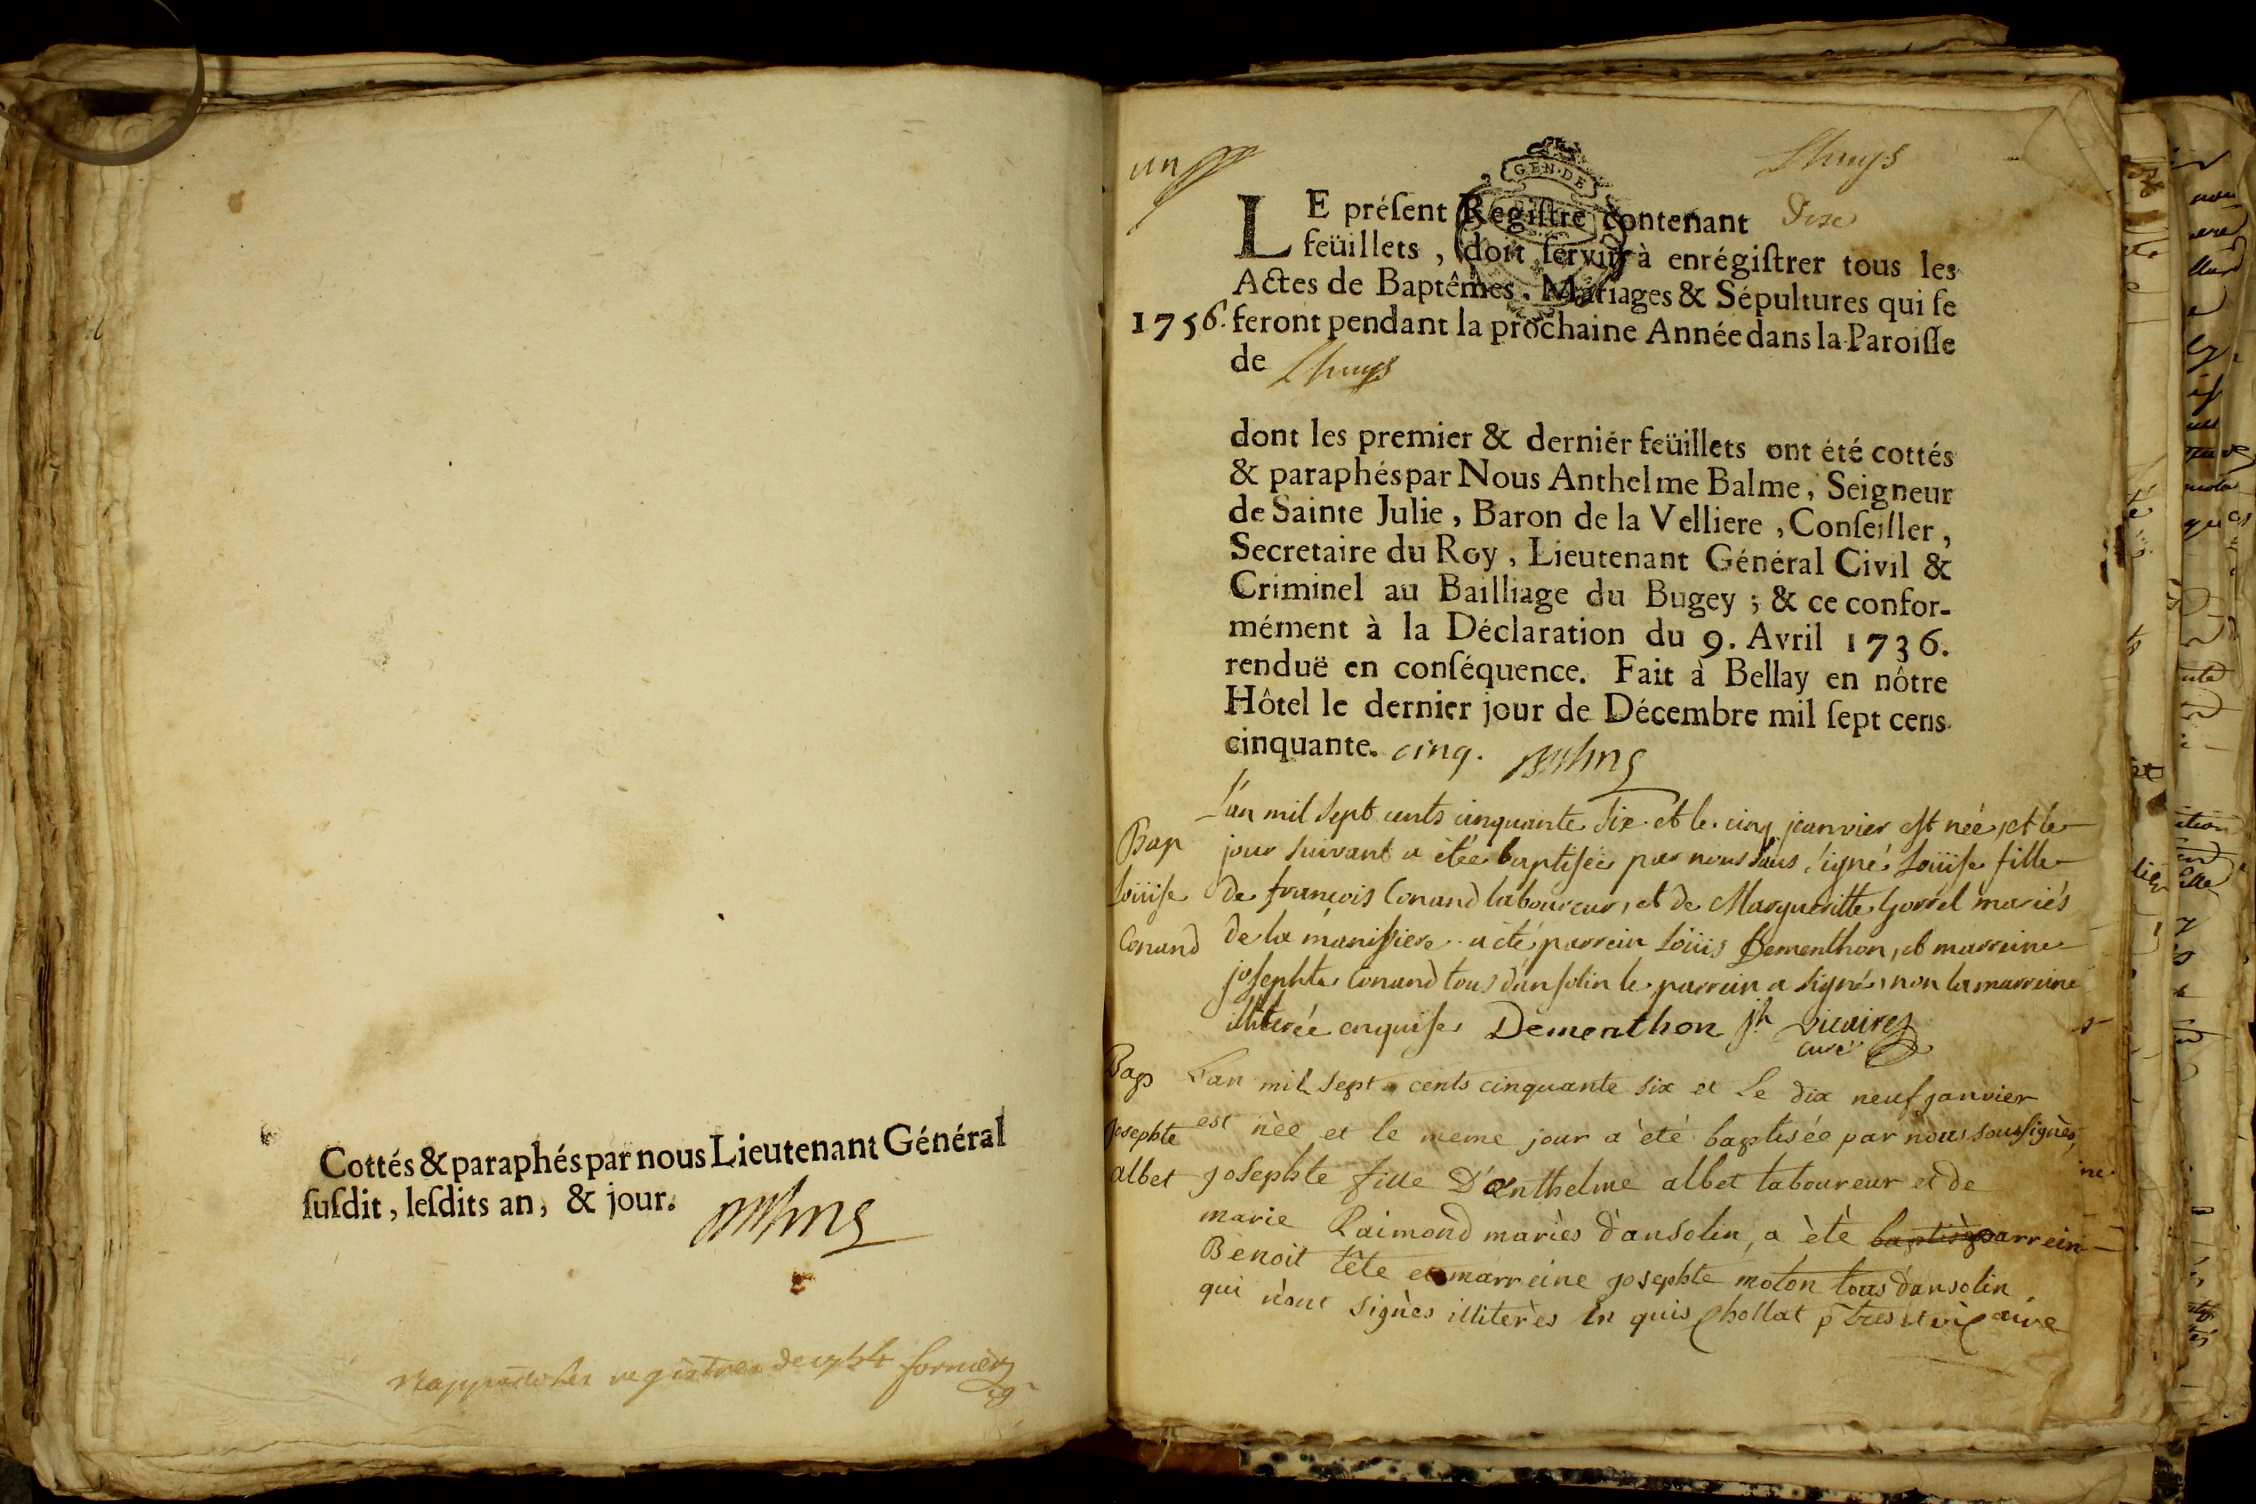 Cottés & paraphés par nous Lieutenant Général
ſuſdit, leſdits an, & jour.
registres de 1754
un
Lhuys
GEN. DE
LE préſent Regiſtre contenant Dix
feüillets, doit ſervir à enrégiſtrer tous les
Actes de Baptêmes, Mariages & Sépultures qui ſe
1756. feront pendant la prochaine Année dans la Paroiſſe
de Lhuys
dont les premier & derniér feüillets ont été cottés
& paraphés par Nous Anthelme Balme, Seigneur
de Sainte Julie, Baron de la Velliere, Conſeiller,
Secretaire du Roy, Lieutenant Général Civil &
Criminel au Bailliage du Bugey ; & ce confor-
mément à la Déclaration du 9. Avril 1736.
renduë en conſéquence. Fait à Bellay en nôtre
Hôtel le dernier jour de Décembre mil ſept cens
cinquante. cinq.
L'an mil sept cents cinquante six et le cinq janvier est née, et le
Bap
jour suivant a étée baptisée par nous sous signé Loüise fille
Loüise
de françois Conand laboureur, et de Margueritte Gorrel mariés
Conand
de la manissiere a été parrein Loüis Dementhon, et marreine
josephte Conand tous d'ansolin le parrein a signé, non la marreine
illiterée enquise Dementhon jh vicaire
curé
Bap
L'an mil sept cents cinquante six et Le dix neuf janvier
josephte
est nèe et le meme jour a èté baptisée par nous soussignès,
albet
josephte fille D'anthelme albet laboureur et de
marie Raimond mariès d'ansolin, a èté baptisè parrein
Benoit tête et marreine josephte moton tous d'ansolin
qui n'ont signès illiterès in quis Chollat ptres et vicaire